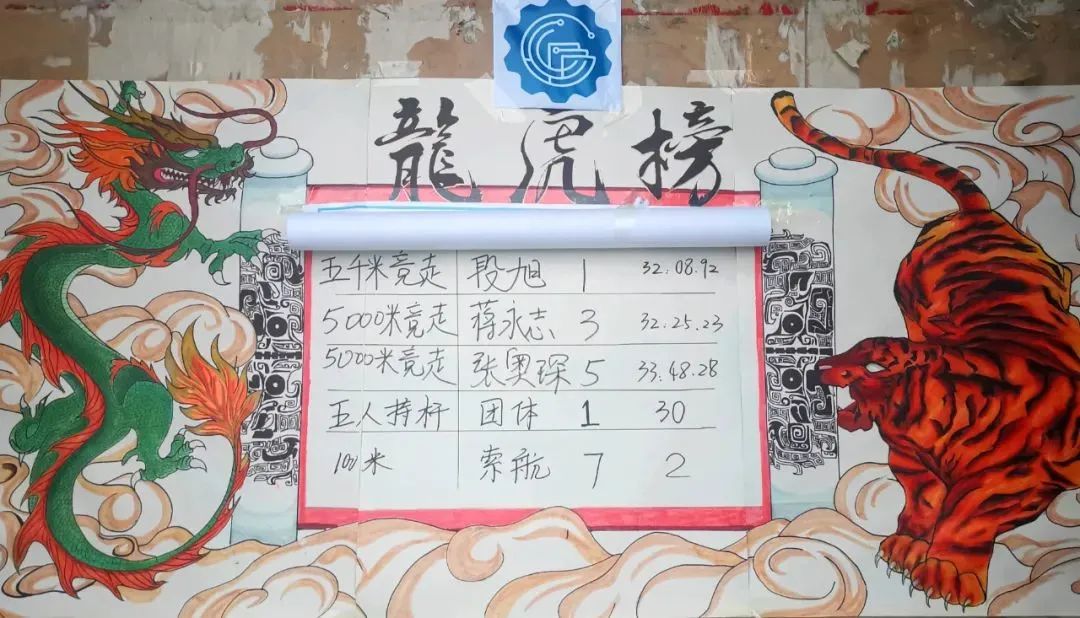 龍虎榜
五千米竞走 段旭 1 32.08.92
5000米竞走 蒋永志 3 32.25.23
5000米竞走 张奥琛 5 33.48.28
五人持杆 团体 1 30
100米 索航 7 2